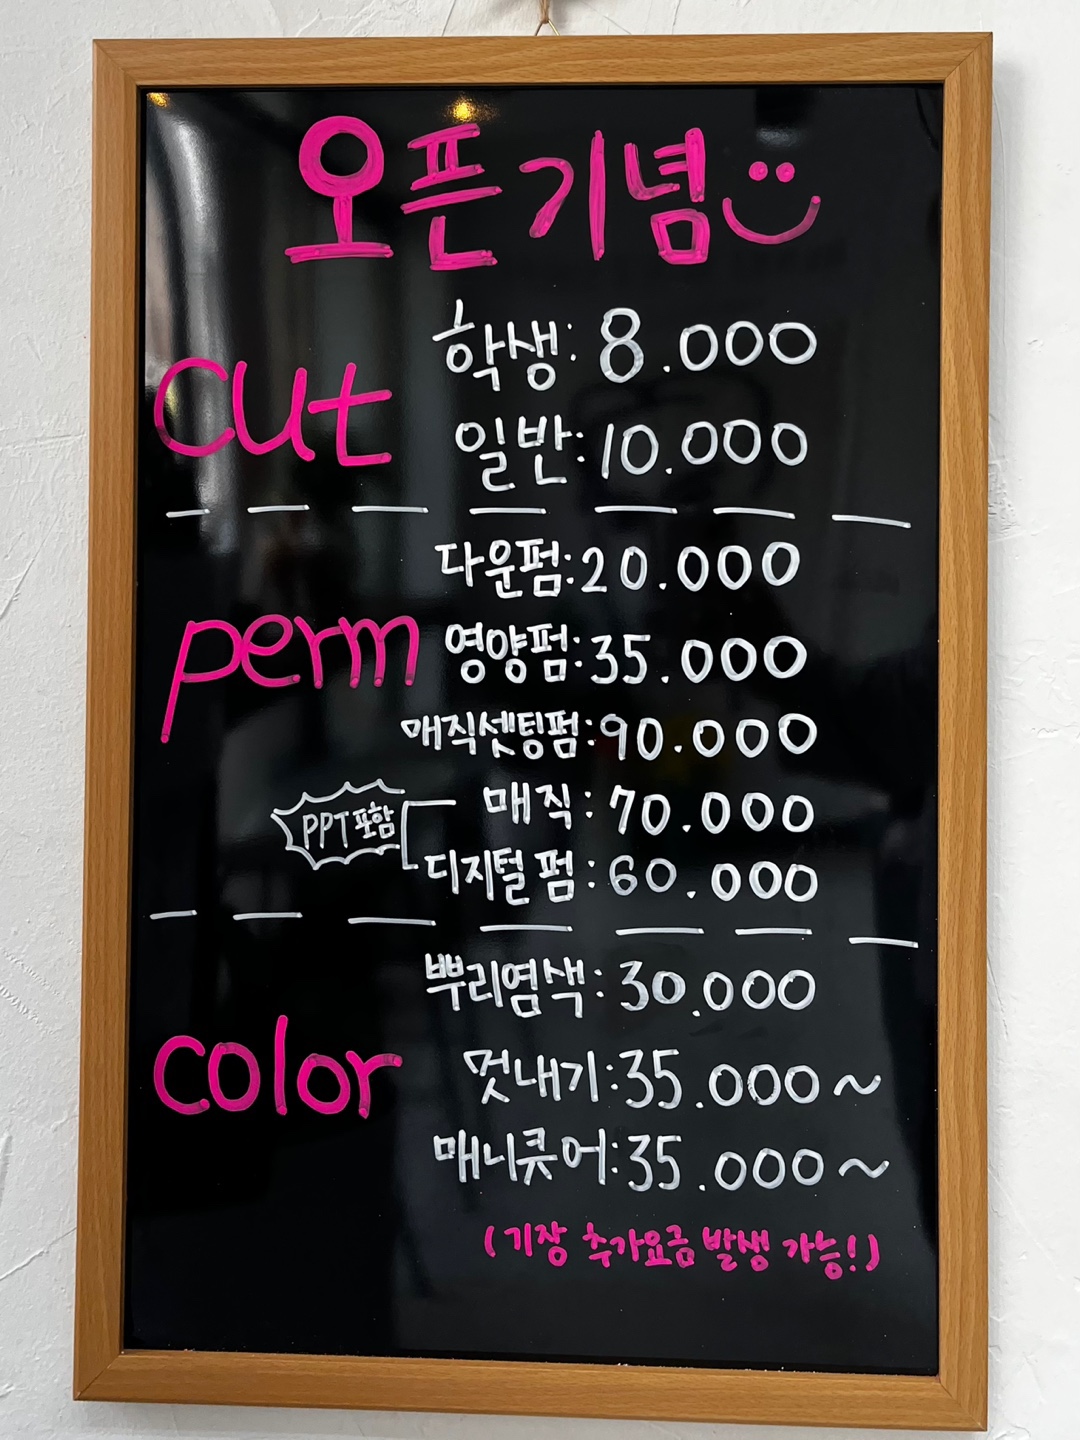 오픈기념
cut
학생: 8.000
일반: 10.000
perm
다운펌: 20.000
영양펌: 35.000
매직셋팅펌: 90.000
PPT포함
매직: 70.000
디지털펌: 60.000
color
뿌리염색: 30.000
멋내기: 35.000~
매니큐어: 35.000~
(기장 추가요금 발생 가능!)